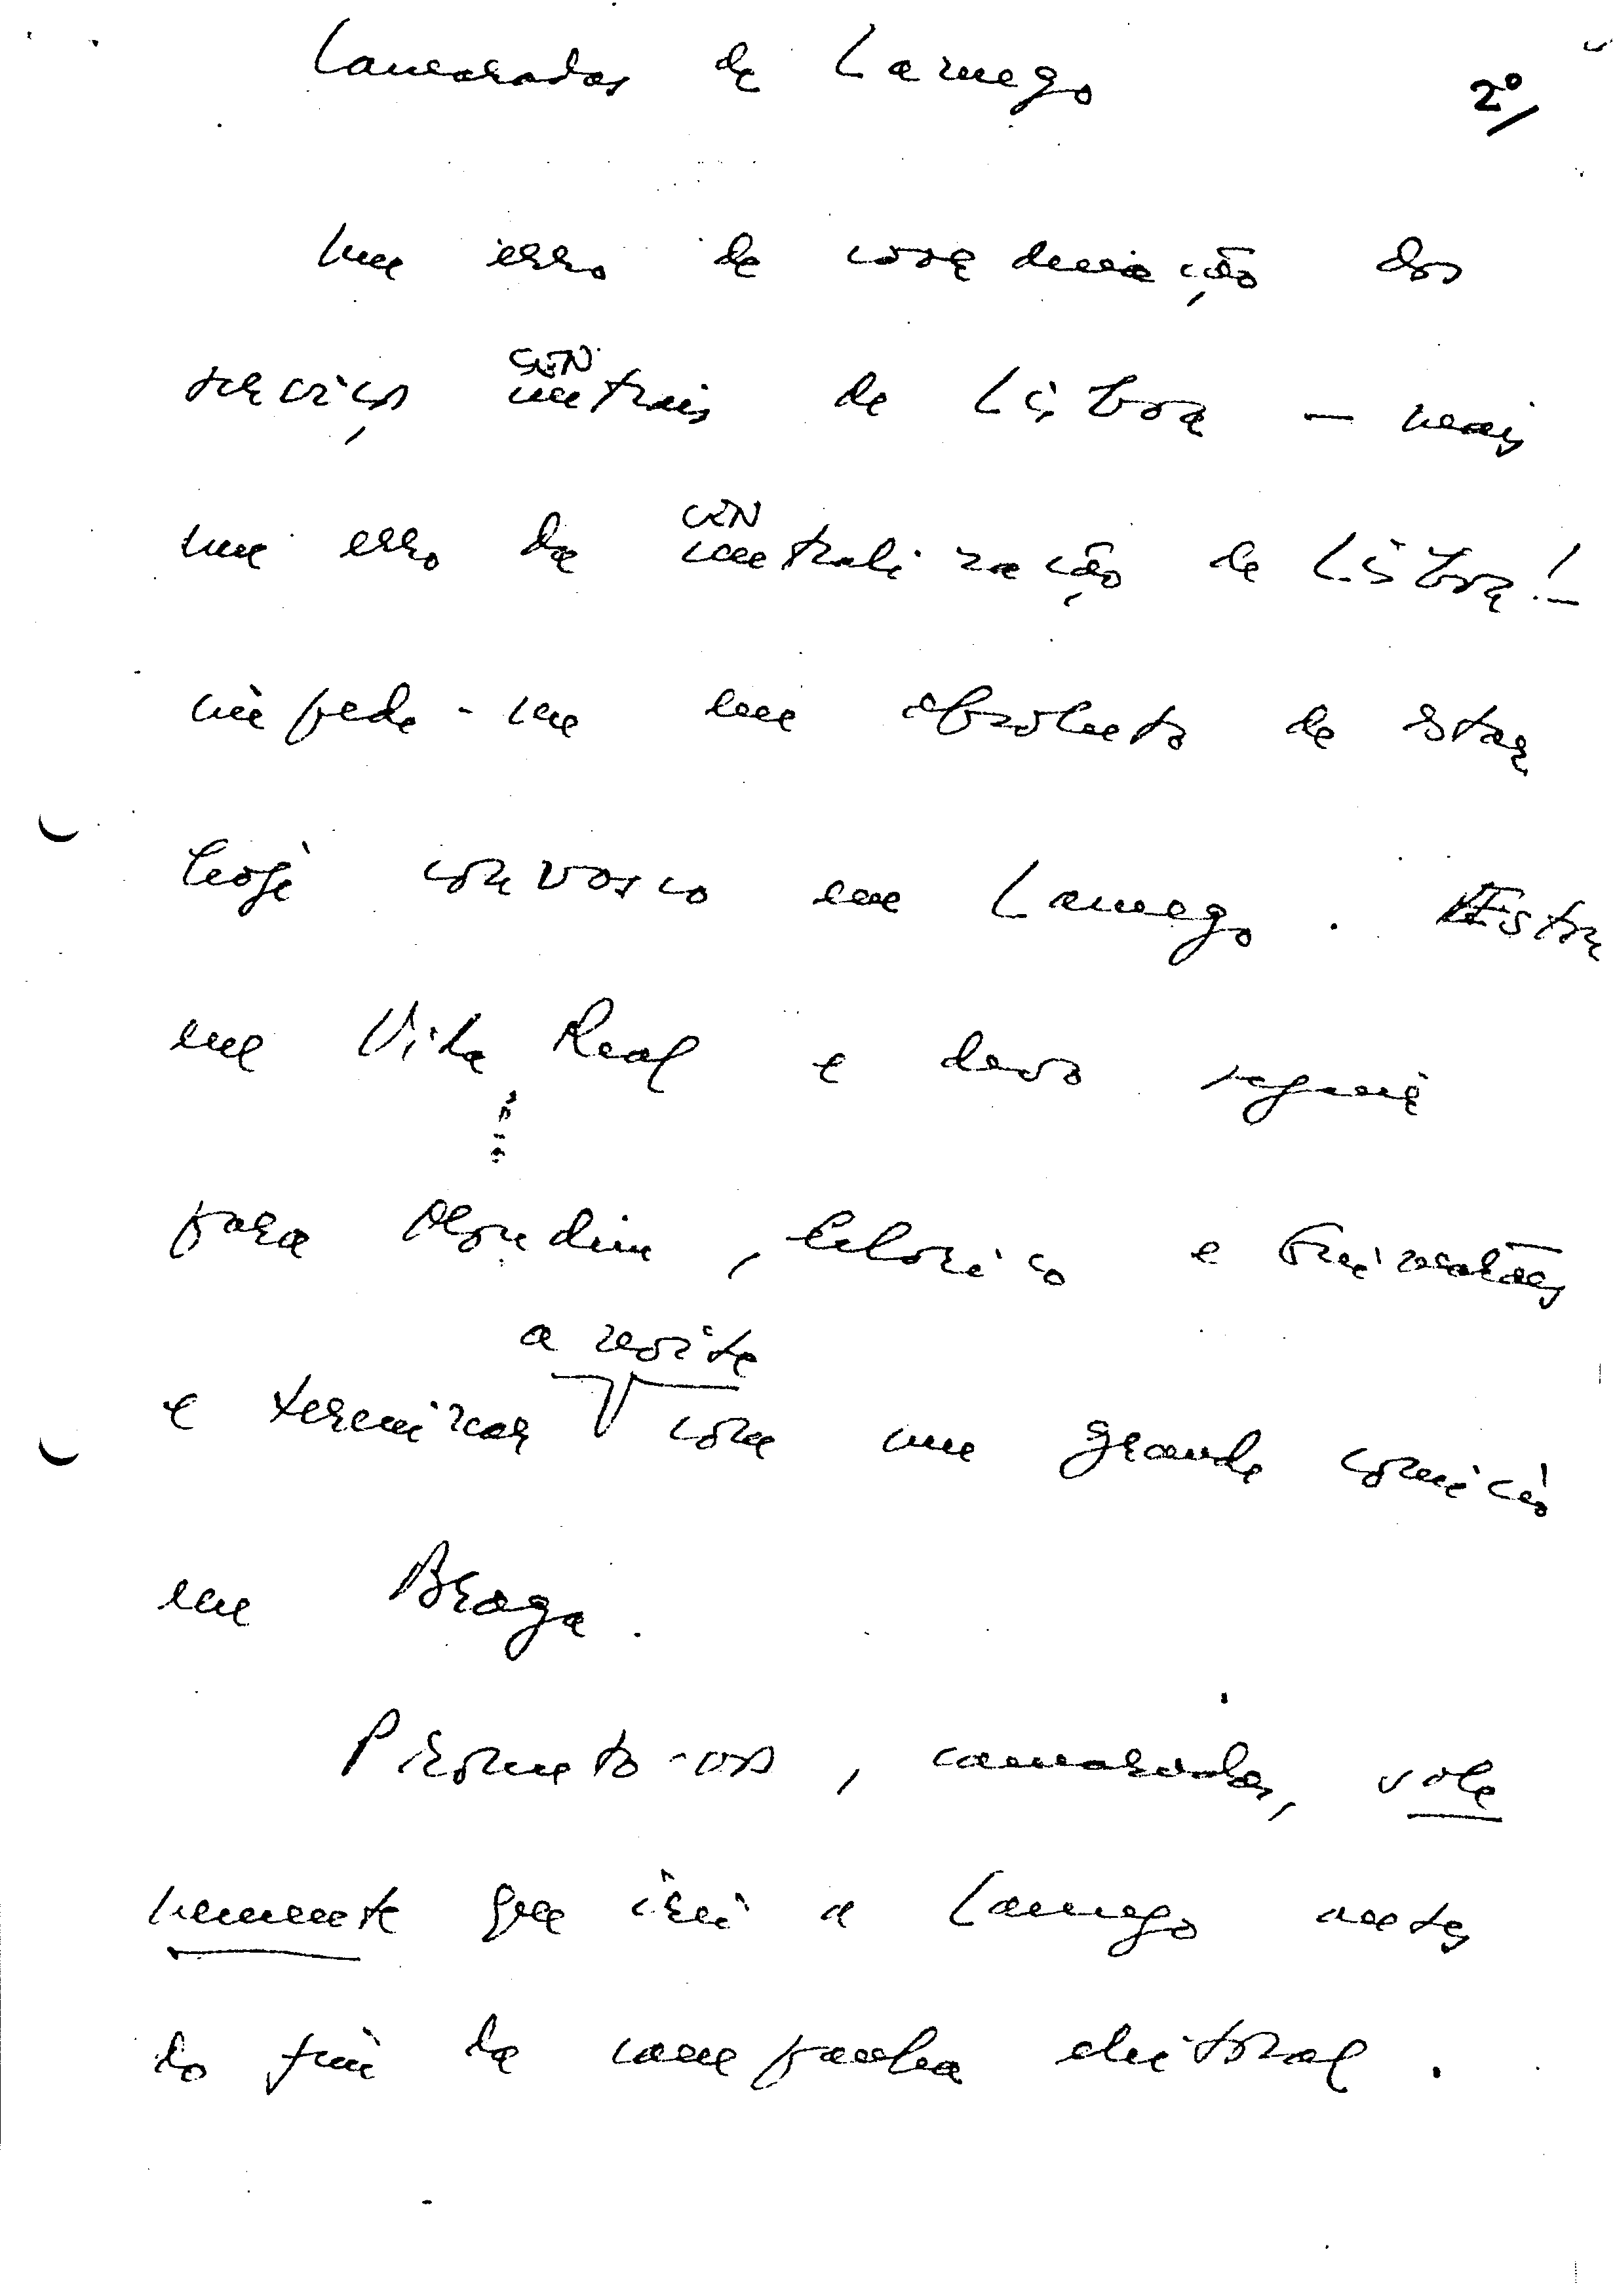 Camaradas de Lamego
2º/
Um erro de coordenação dos
serviços centrais de Lisboa – mais
CEN
um erro da centralização de Lisboa! –
CEN
impede-me em absoluto de estar
hoje convosco em Lamego. Estou
em Vila Real e devo seguir
para Mondim, Celorico e Guimarães
a noite
e terminar com um grande comício
em Braga.
Prometo-vos, camaradas, sole
nemente que irei a Lamego antes
do fim da campanha eleitoral.